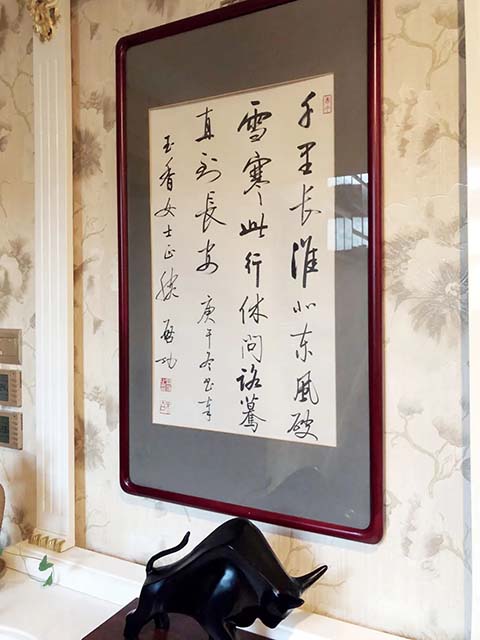 千里长淮北东风破
雪寒此行休问路驀
直到長安 庚午冬书奉
玉香女士正腕 启功